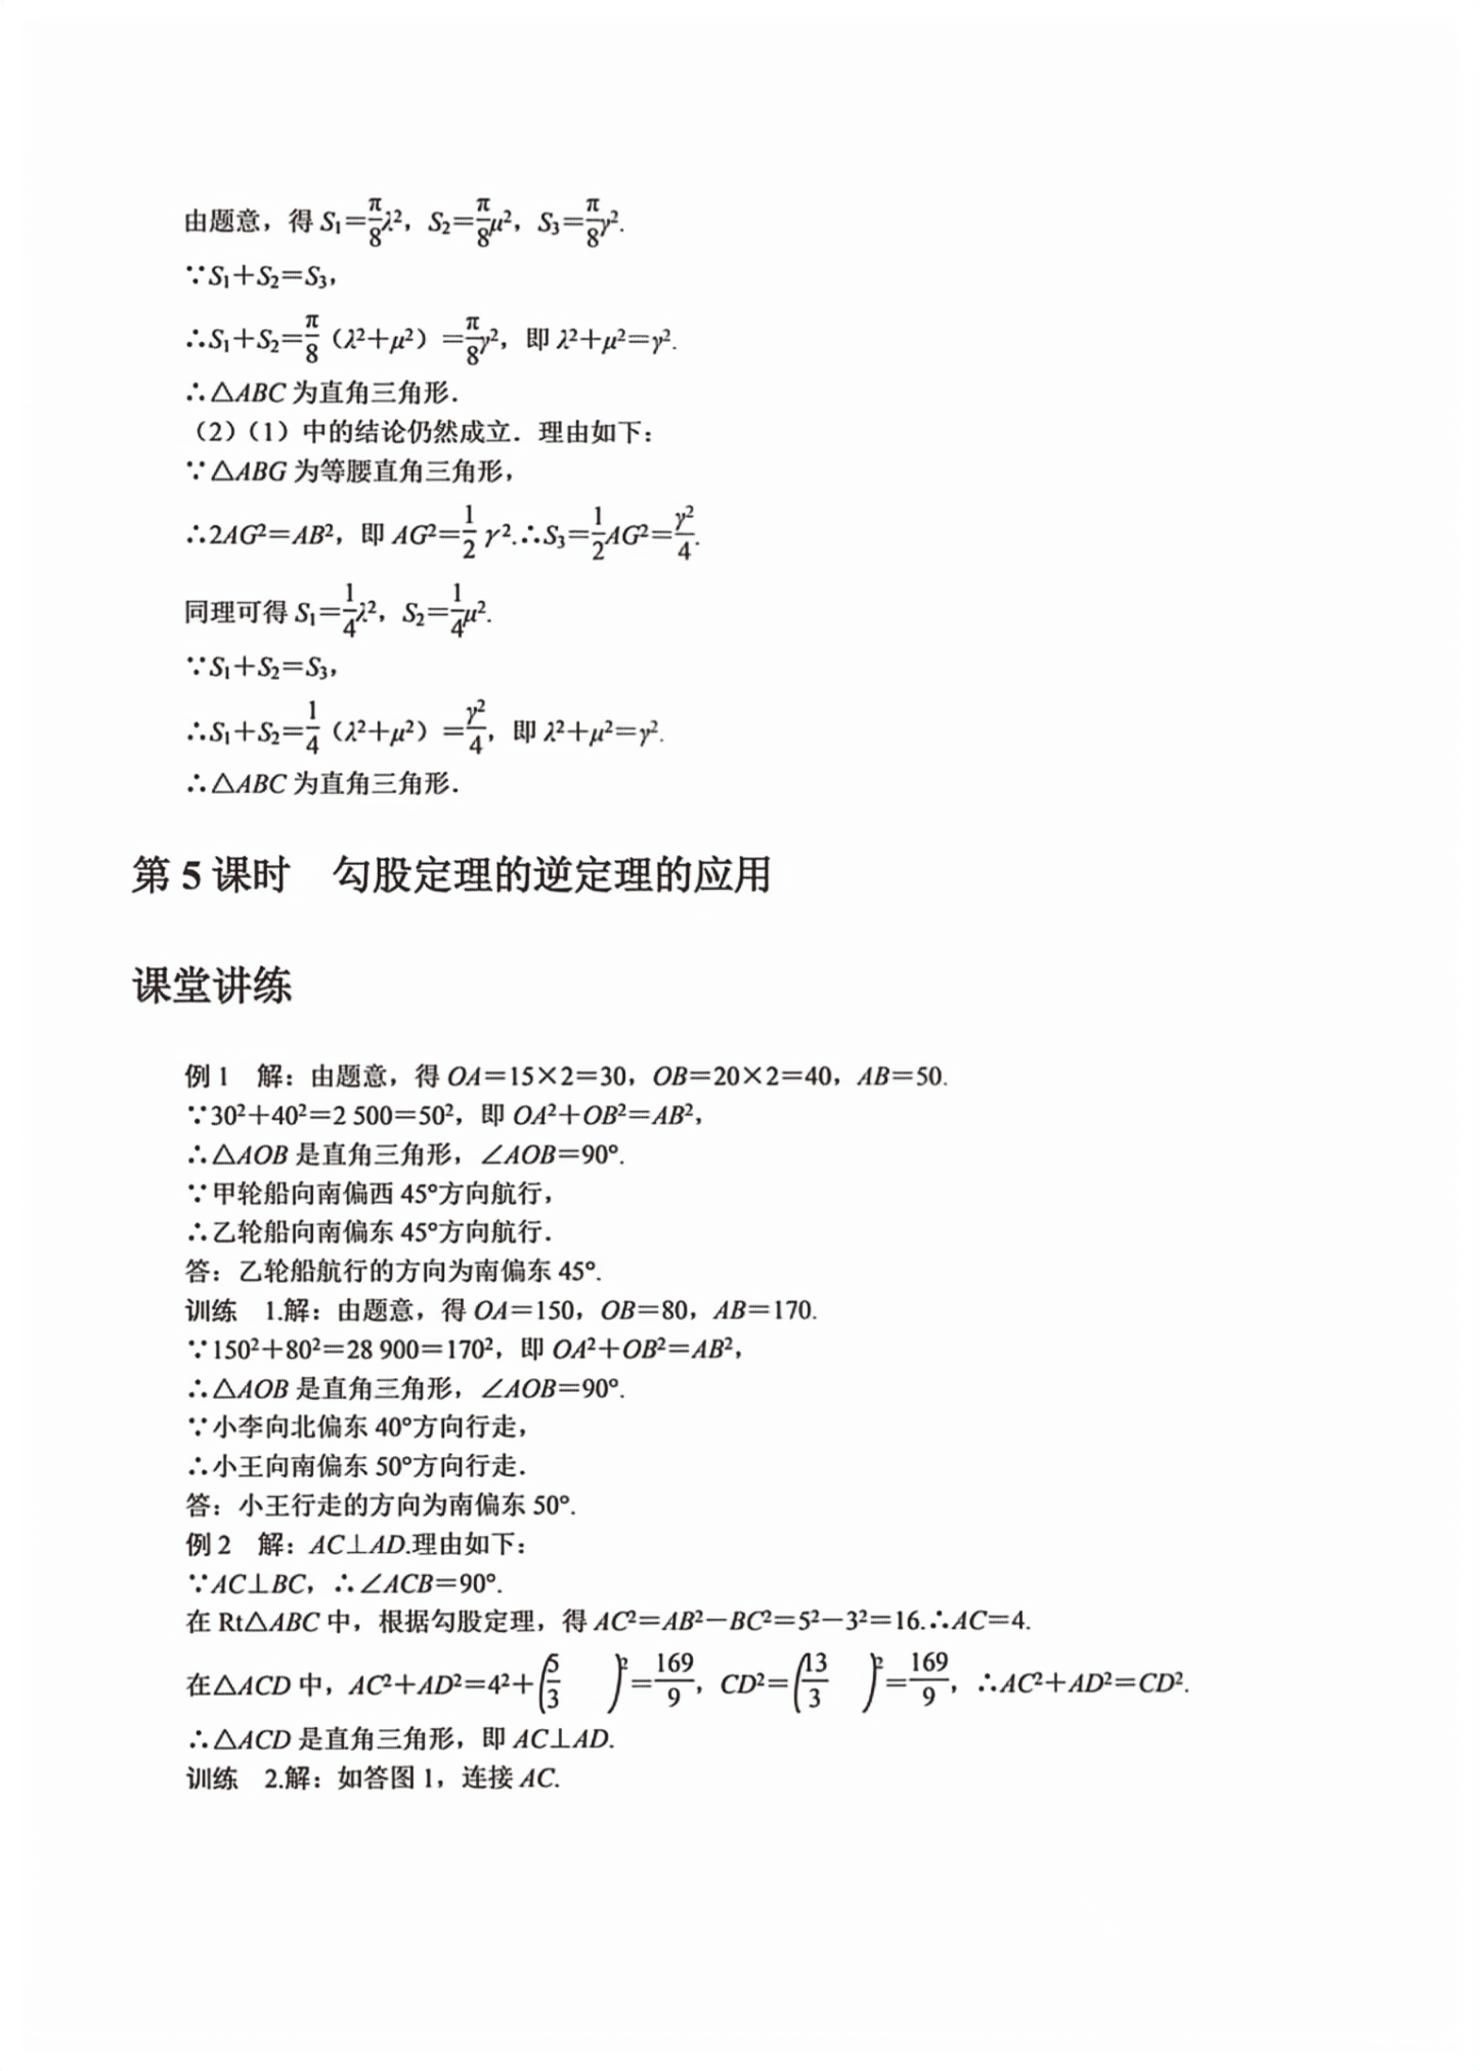 由题意，得 S₁＝π/8λ²，S₂＝π/8μ²，S₃＝π/8γ².
∵S₁＋S₂＝S₃，
∴S₁＋S₂＝π/8（λ²＋μ²）＝π/8γ²，即 λ²＋μ²＝γ².
∴△ABC 为直角三角形．
（2）（1）中的结论仍然成立．理由如下：
∵△ABG 为等腰直角三角形，
∴2AG²＝AB²，即 AG²＝1/2 γ².∴S₃＝1/2AG²＝γ²/4.
同理可得 S₁＝1/4λ²，S₂＝1/4μ².
∵S₁＋S₂＝S₃，
∴S₁＋S₂＝1/4（λ²＋μ²）＝γ²/4，即 λ²＋μ²＝γ².
∴△ABC 为直角三角形．
第 5 课时　勾股定理的逆定理的应用
课堂讲练
例 1　解：由题意，得 OA＝15×2＝30，OB＝20×2＝40，AB＝50.
∵30²＋40²＝2 500＝50²，即 OA²＋OB²＝AB²，
∴△AOB 是直角三角形，∠AOB＝90°.
∵甲轮船向南偏西 45°方向航行，
∴乙轮船向南偏东 45°方向航行．
答：乙轮船航行的方向为南偏东 45°.
训练　1.解：由题意，得 OA＝150，OB＝80，AB＝170.
∵150²＋80²＝28 900＝170²，即 OA²＋OB²＝AB²，
∴△AOB 是直角三角形，∠AOB＝90°.
∵小李向北偏东 40°方向行走，
∴小王向南偏东 50°方向行走．
答：小王行走的方向为南偏东 50°.
例 2　解：AC⊥AD.理由如下：
∵AC⊥BC，∴∠ACB＝90°.
在 Rt△ABC 中，根据勾股定理，得 AC²＝AB²－BC²＝5²－3²＝16.∴AC＝4.
在△ACD 中，AC²＋AD²＝4²＋(5/3)²＝169/9，CD²＝(13/3)²＝169/9，∴AC²＋AD²＝CD².
∴△ACD 是直角三角形，即 AC⊥AD.
训练　2.解：如答图 1，连接 AC.